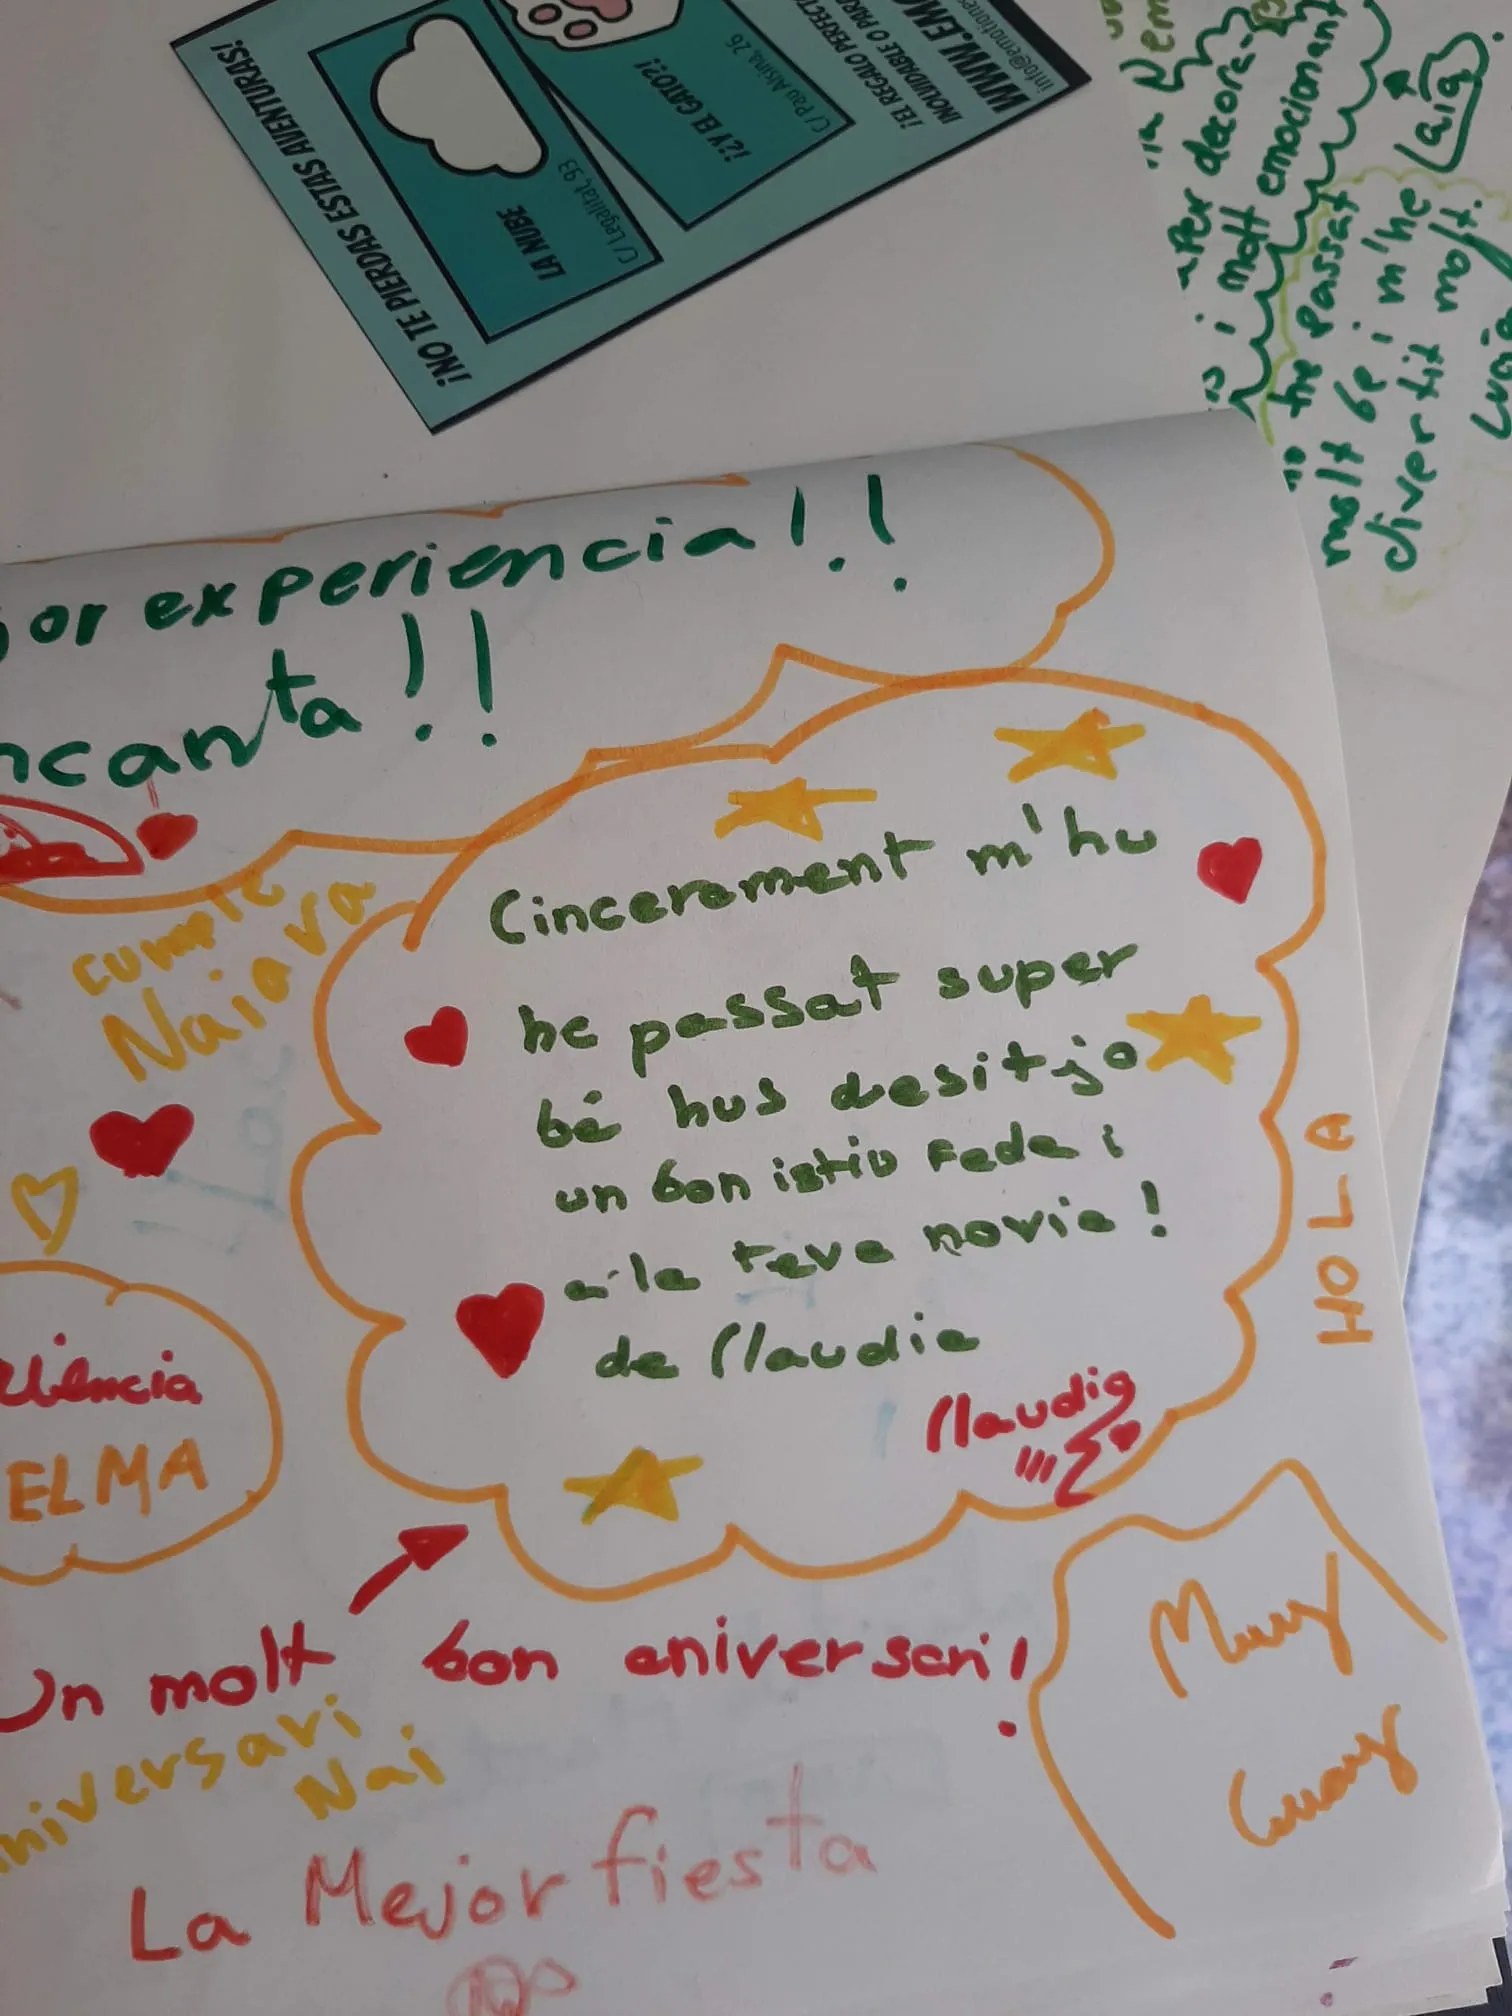 ¡NO TE PIERDAS ESTAS AVENTURAS!
LA NUBE
C/ Legalitat, 93
¡¿Y EL GATO?!
C/ Pau Alsina, 26
¡EL REGALO PERFECTO
INOLVIDABLE O PARA
WWW.EMO
info@emotiones
decora-
i molt emocionant
he passat
molt be i m'he
divertit molt.
or experiencia!!
ncanta!!
cumple
Naiara
Cincerament m'hu
he passat super
bé hus desitjo
un bon istiu Fede i
a la teva novia!
de Claudia
Claudia
HOLA
ELMA
Un molt bon aniversari!
niversari
Nai
Muy
Guay
La Mejor fiesta